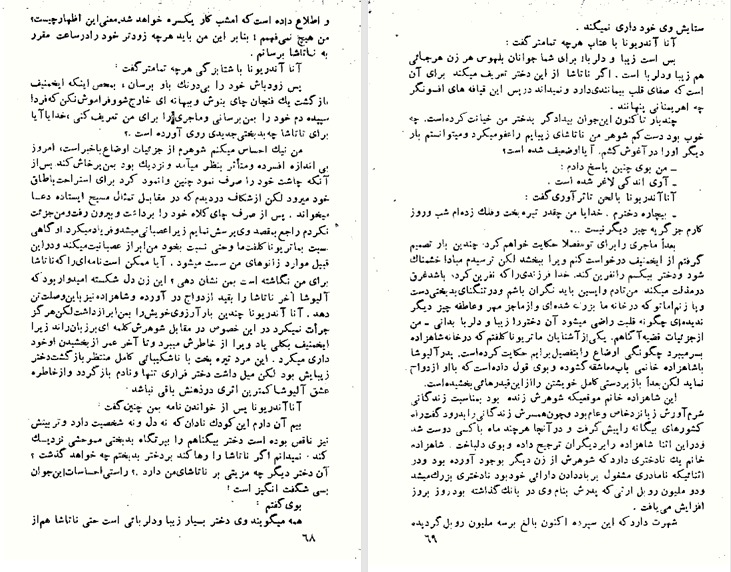 و اطلاع داده است که امشب کار یکسره خواهد شد. معنی این اظهار چیست؟
من هیچ نمی فهمم؛ بنابر این من باید هرچه زودتر خود را در ساعت مقرر
به ناتاشا برسانم.
آنا آندریونا با شتابزدگی هرچه تمامتر گفت:
پس زودباش خود را بی درنك باو برسان؛ بمحض اینکه ایخمنیف
بازگشت یك فنجان چای بنوش و ببهانه ای خارج شو و فراموش نکن که فردا
سپیده دم خود را بمن برسانی و ماجری را برای من تعریف کنی، خدایا آیا
برای ناتاشا چه بدبختی جدیدی روی آورده است.؟
من نیك احساس میکنم شوهرم از جزئیات اوضاع با خبر است، امروز
بی اندازه افسرده و متأثر بنظر میآمد و نزدیك بود بمن پرخاش کند پس از
آنکه چاشت خود را صرف نمود چنین وانمود کرد برای استراحت باطاق
خود میرود لکن از شکاف در دیدم که در مقابل تمثال مسیح ایستاده دعا
میخواند. پس از صرف چای کلاه خود را برداشت و بیرون رفت و من جرئت
نکردم راجع بمقصد وی پرسش نمایم زیرا عصبانی میشد و فریاد میکرد او گاهی
نسبت بماتریونا کلفت ما و حتی نسبت بخود من ابراز عصبانیت میکند و در این
قبیل موارد زانوهای من سست میشود. آیا ممکن است نامه ای را که ناتاشا
برای من نگاشته است بمن نشان دهی؟ این زن دل شکسته امیدوار بود که
آلیوشا آخر ناتاشا را بقید ازدواج در آورده و شاهزاده نیز باین وصلت تن
دهد. آنا آندریونا چندین بار آرزوی خویش را بمن ابراز داشت لکن هرگز
جرأت نمیکرد در این خصوص در مقابل شوهرش کلمه ای بر زبان راند زیرا
ایخمنیف بکلی یاد ویرا از خاطرش میبرد و تا آخر عمر از بخشیدن او خود
داری میکرد. این مرد تیره بخت با ناشکیبائی کامل منتظر بازگشت دختر
زیبایش بود لکن میل داشت دختر فراری تنها و نادم بازگردد و از خاطره
عشق آلیوشا کمترین اثری در ذهنش باقی نباشد.
آنا آندریونا پس از خواندن نامه بمن چنین گفت:
بیم آن دارم این کودك نادان که نه دل و نه شخصیت دارد و تربیتش
نیز ناقص بوده است دختر بیگناهم را بپرتگاه بدبختی موحشی نزدیك
کند. نمیدانم اگر ناتاشا را رها کند بر دختر بدبختم چه خواهد گذشت؟
آن دختر دیگر چه مزیتی بر ناتاشای من دارد.؟ راستی احساسات این جوان
بسی شگفت انگیز است!
بوی گفتم:
همه میگویند وی دختر بسیار زیبا و دلرباتی است حتی ناتاشا هم از
۶۸
ستایش وی خود داری نمیکند.
آنا آندریونا با عتاب هرچه تمامتر گفت:
بس است زیبا و دلربا؛ برای شما جوانان بلهوس هر زن هرجائی
هم زیبا و دلربا است. اگر ناتاشا از این دختر تعریف میکند برای آن
است که صفای قلب بیمانندی دارد و نمیداند در پس این قیافه های افسونگر
چه اهریمنانی پنهانند.
چندبار تا کنون این جوان بیدادگر بدختر من خیانت کرده است. چه
خوب بود دست کم شوهر من ناتاشای زیبایم را عفو میکرد و میتوانستم بار
دیگر او را در آغوش کشم. آیا وضعیف شده است؟
ـ من بوی چنین پاسخ دادم:
ـ آری اندکی لاغر شده است.
آنا آندریونا بالحن تاثر آوری گفت:
ـ بیچاره دخترم. خدایا من چقدر تیره بخت و فلك زده ام شب و روز
کارم جز گریه چیز دیگر نیست ...
بعداً ماجری را برای تو مفصلا حکایت خواهم کرد؛ چندین بار تصمیم
گرفتم از ایخمنیف درخواست کنم ویرا ببخشد لکن ترسیدم مبادا خشمناك
شود و دختر بیکسم را نفرین کند. خدا فرزندی را که نفرین کرده باشد غرق
در مذلت میکند من تا دم واپسین باید نگران باشم و در تنگنای بدبختی دست
و پا زنم اما تو که در خانه ما بزرك شده ای و از ما جز مهر و عاطفه چیز دیگر
ندیده ای چگونه قلبت راضی میشود آن دختر را زیبا و دلربا بدانی ـ من
از جزئیات قضیه آگاهم. یکی از آشنایان ماتریونا کلفتم که در خانه شاهزاده
بسر میبرد چگونگی اوضاع را بتفصیل برایم حکایت کرده است. پدر آلیوشا
با شاهزاده خانمی باب معاشقه گشوده و بوی قول داده است که با او ازدواج
نماید لکن بعداً با زبردستی کامل خویشتن را از این قید رهائی بخشیده است.
این شاهزاده خانم موقعیکه شوهرش زنده بود بمناسبت زندگانی
شرم آورش زبانزد خاص و عام بود و چون همسرش زندگانی را بدرود گفت راه
کشورهای بیگانه را پیش گرفت و در آنجا هر چند ماه با کسی دوست شد
و در این اثنا شاهزاده را بر دیگران ترجیح داده و بوی دلباخت. شاهزاده
خانم یك نادختری دارد که شوهرش از زن دیگر بوجود آورده بود و در
اثنائیکه نامادری مشغول بر باد دادن دارائی خود بود نادختری بزرك میشد
و دو ملیون روبل ارثی که پدرش بنام وی در بانك گذاشته بود روز بروز
افزایش می یافت.
شهرت دارد که این سپرده اکنون بالغ بر سه ملیون روبل گردیده
۶۹